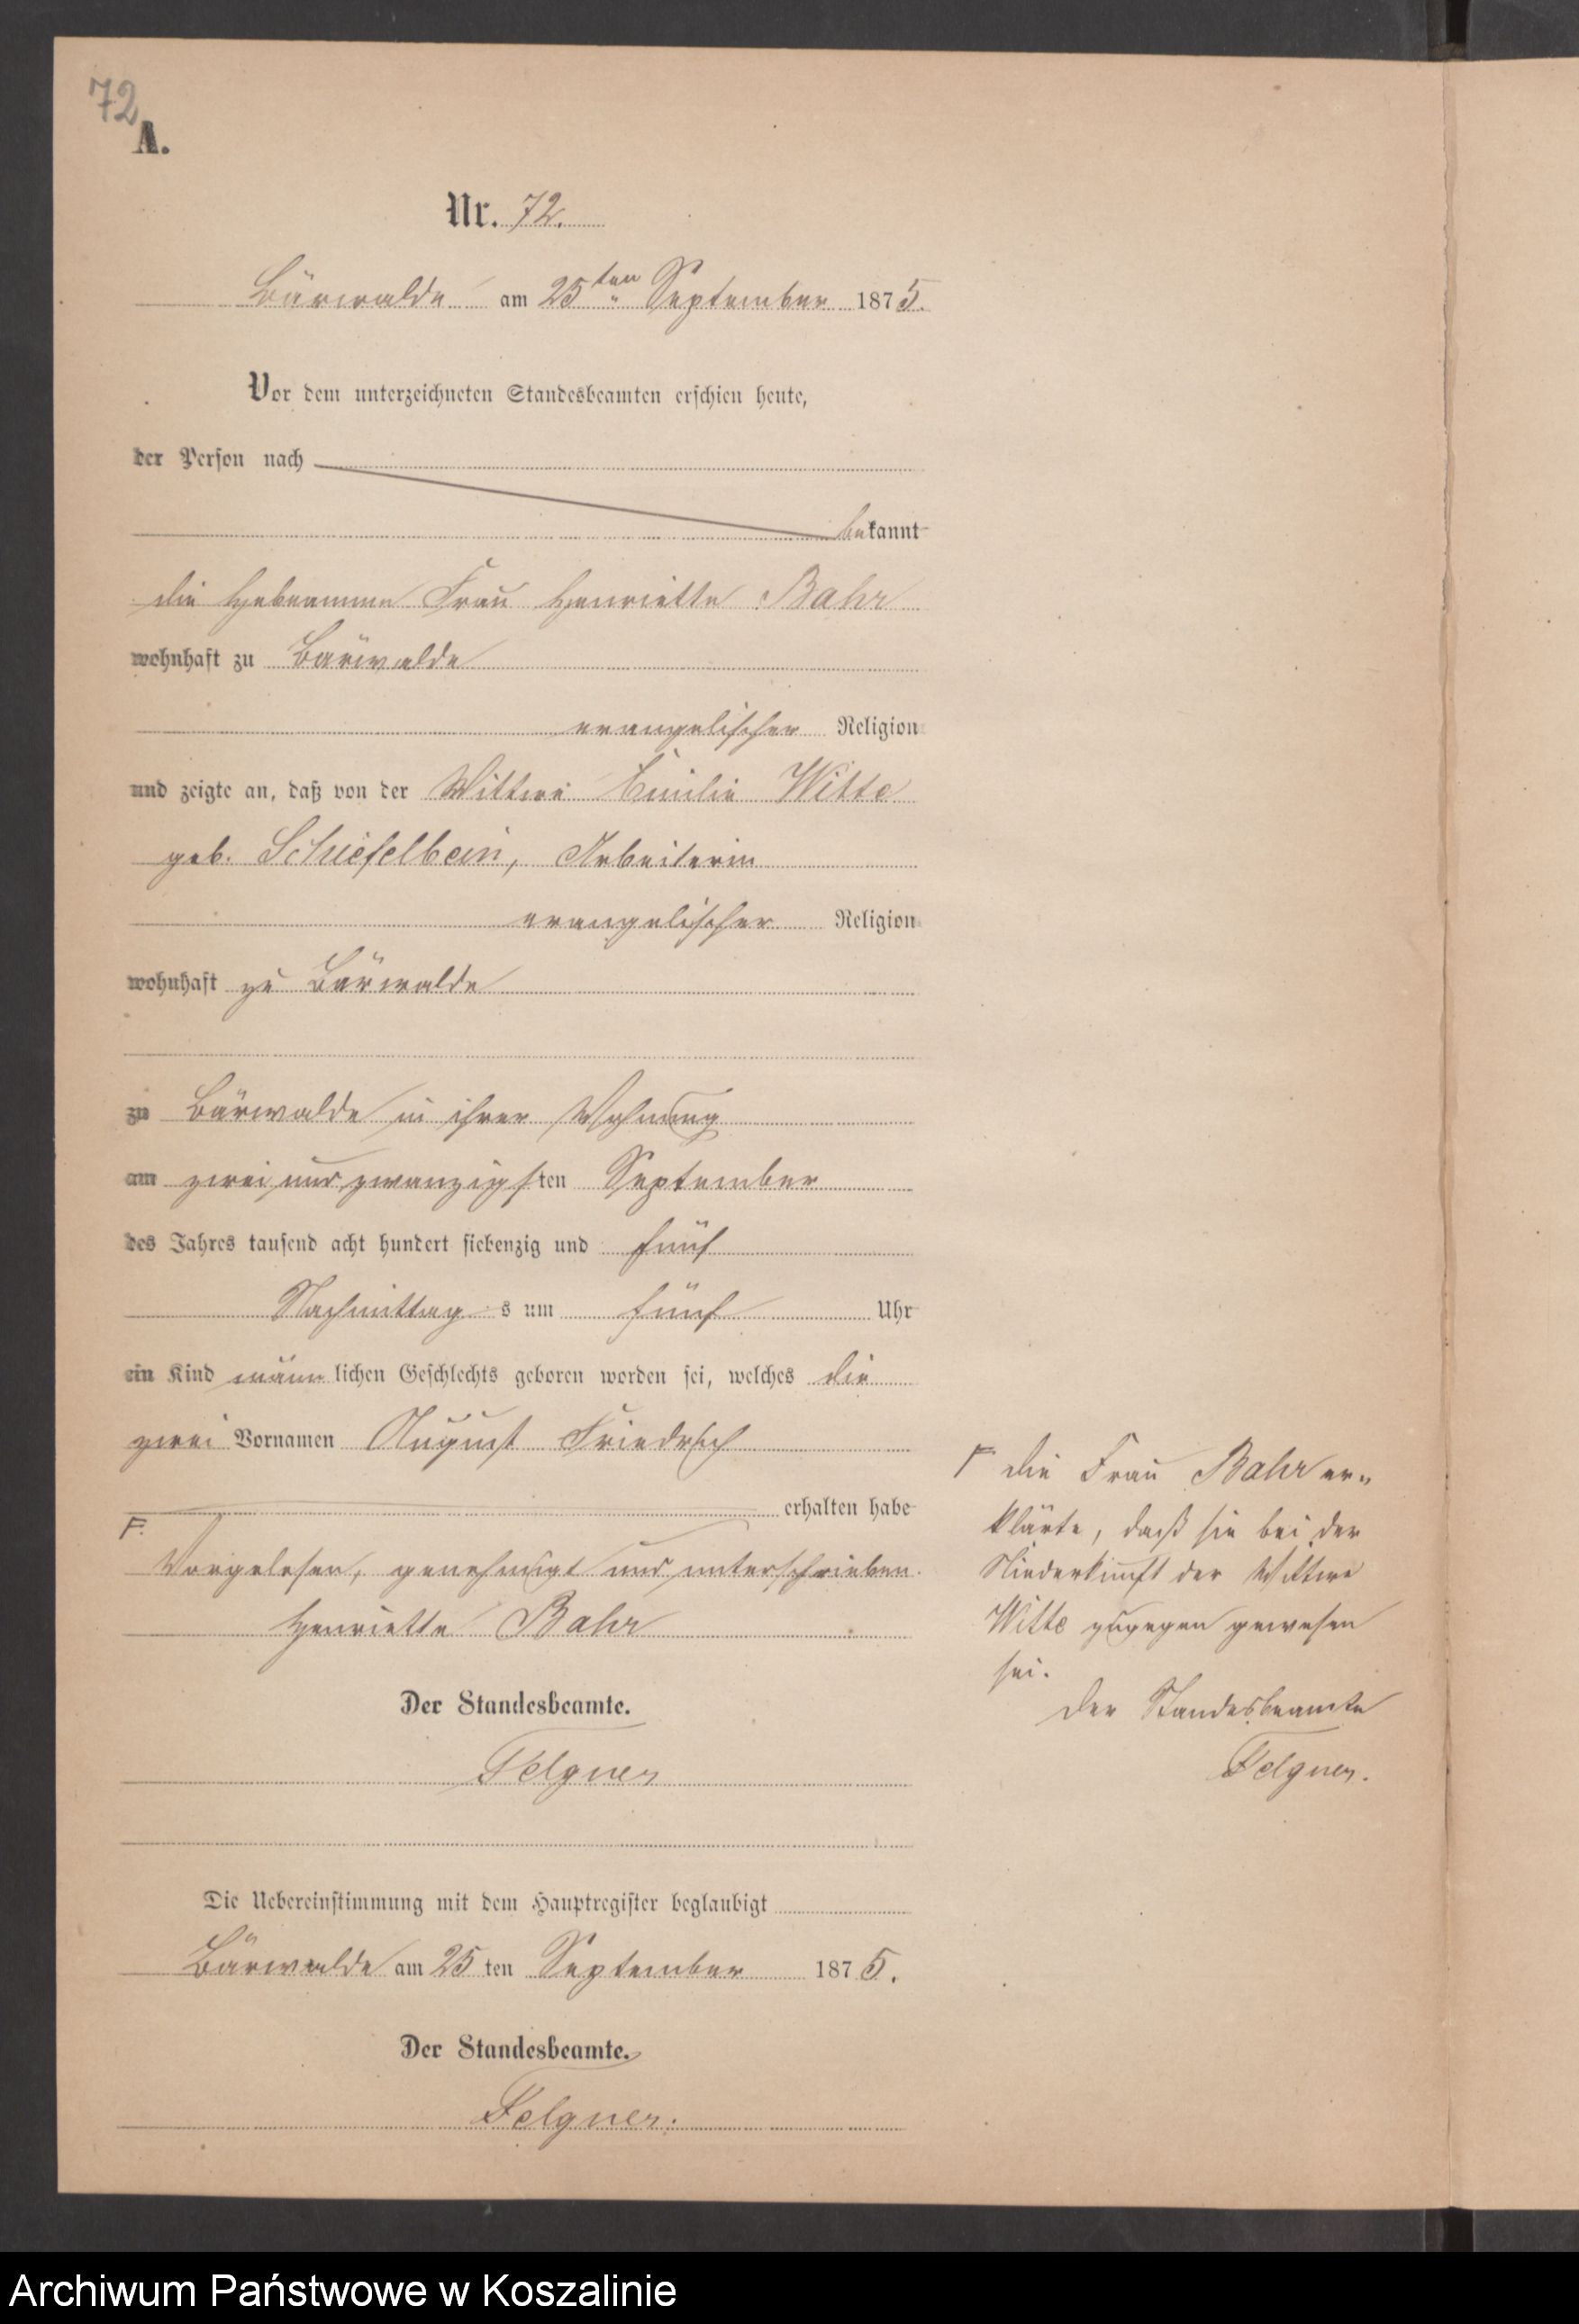 72
A.
Nr. 72.
Bärwalde am 25ten September 1875.
Vor dem unterzeichneten Standesbeamten erschien heute,
der Person nach
bekannt
die Hebeamme Frau Henriette Bahr
wohnhaft zu Bärwalde
evangelischer Religion
und zeigte an, daß von der Wittwe Emilie Witte
geb. Schiefelbein, Arbeiterin
evangelischer Religion
wohnhaft zu Bärwalde
zu Bärwalde in ihrer Wohnung
am zwei und zwanzigsten September
des Jahres tausend acht hundert siebenzig und fünf
Nachmittags um fünf Uhr
ein Kind männlichen Geschlechts geboren worden sei, welches die
zwei Vornamen August Friedrich
erhalten habe
Vorgelesen, genehmigt und unterschrieben.
Henriette Bahr
Der Standesbeamte.
Felgner
Die Uebereinstimmung mit dem Hauptregister beglaubigt
Bärwalde am 25ten September 1875.
Der Standesbeamte.
Felgner.
die Frau Bahr er„
klärte, daß sie bei der
Niederkunft der Wittwe
Witte zugegen gewesen
sei.
Der Standesbeamte
Felgner.
Archiwum Państwowe w Koszalinie